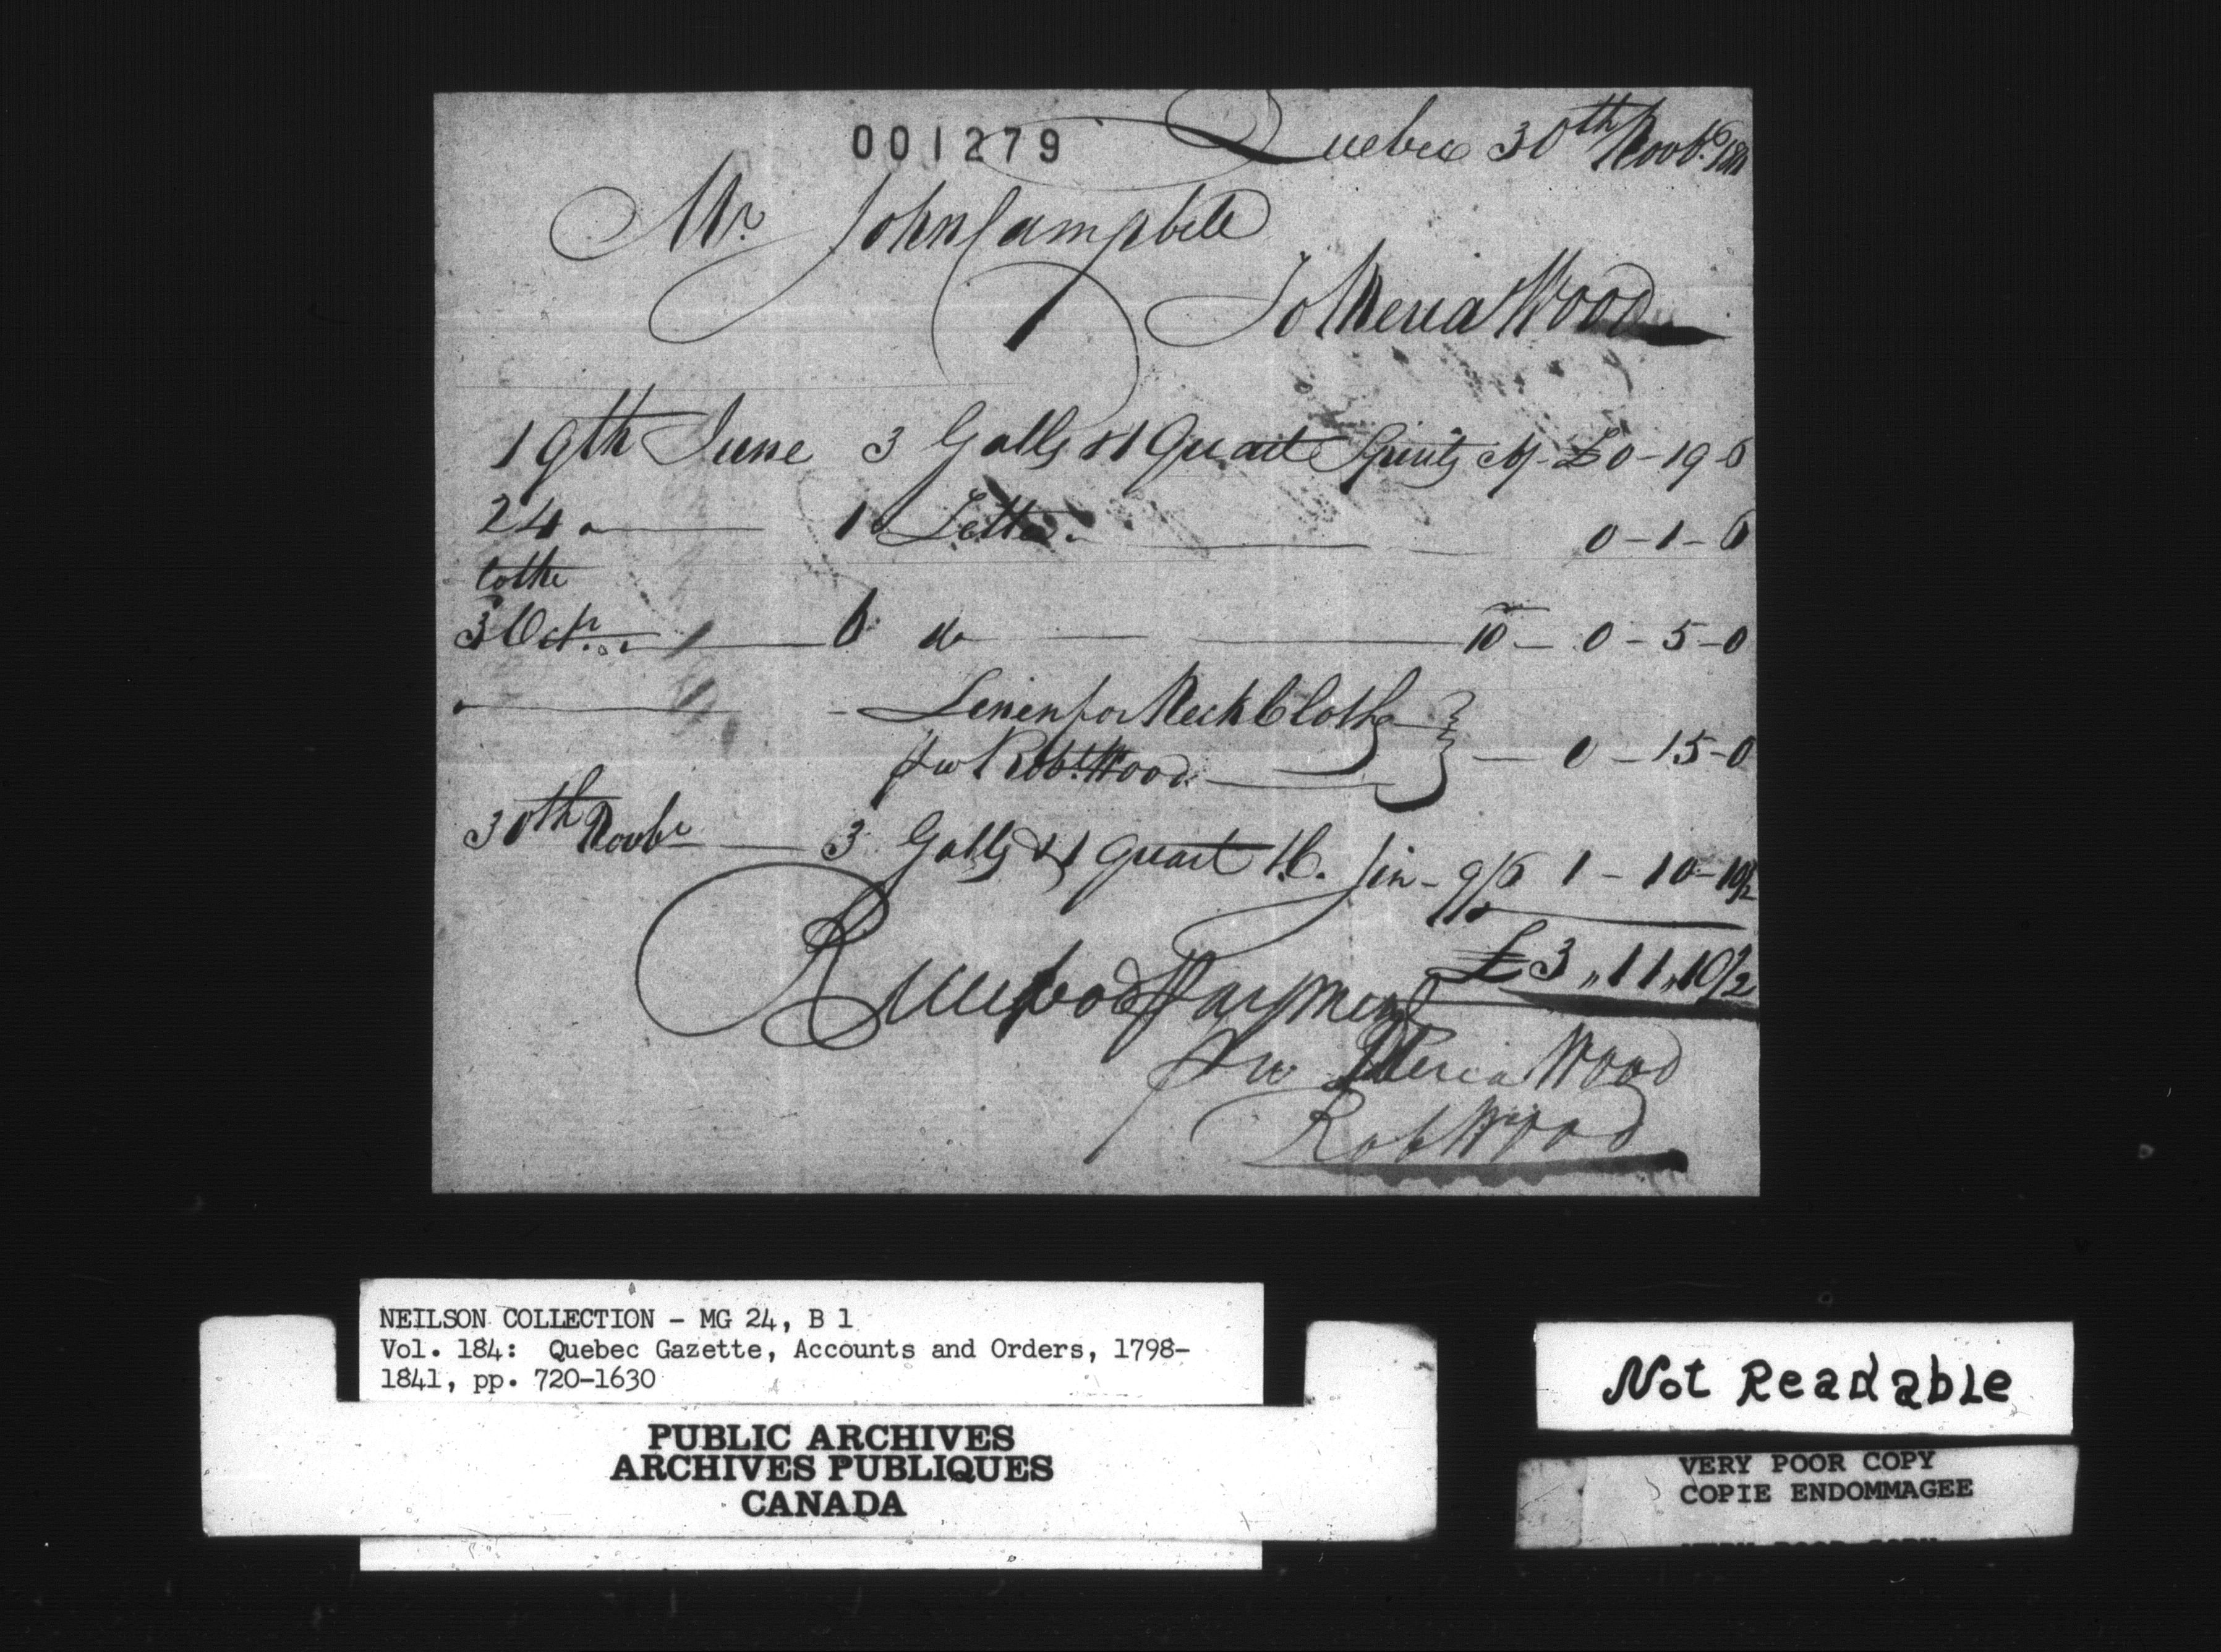 001279
Quebec 30th Novbr. 1811
Mr. John Campbell
To Meria Wood
19th June 3 Galls & 1 Quart Spirits 6/- £0-19-6
24 1 Letter 0-1-6
to the
3 Octr. 6 do 10 - 0-5-0
Linen for Neck Cloths
for Robt. Wood 0-15-0
30th Novbr 3 Galls & 1 Quart H. Gin - 9/6 1-10-10½
£3,,11,,10½
Received Payment
for Meria Wood
Rob Wood
NEILSON COLLECTION - MG 24, B 1
Vol. 184: Quebec Gazette, Accounts and Orders, 1798-
1841, pp. 720-1630
PUBLIC ARCHIVES
ARCHIVES PUBLIQUES
CANADA
Not Readable
VERY POOR COPY
COPIE ENDOMMAGEE